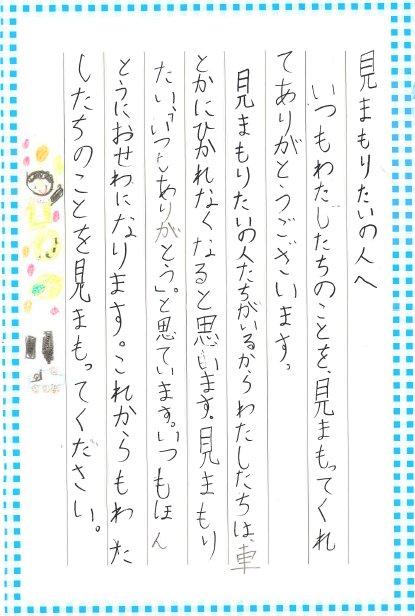 見まもりたいの人へ
いつもわたしたちのことを、見まもってくれ
てありがとうございます。
見まもりたいの人たちがいるからわたしたちは、車
とかにひかれなくなると思います。見まもり
たい、「いつもありがとう」。と思ています。いつもほん
とうにおせわになります。これからもわた
したちのことを見まもってください。